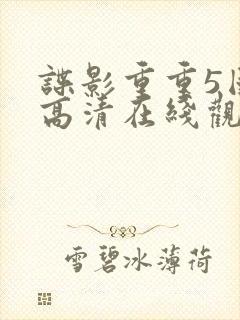 諜影重重5
高清在綫觀
雪碧冰薄荷